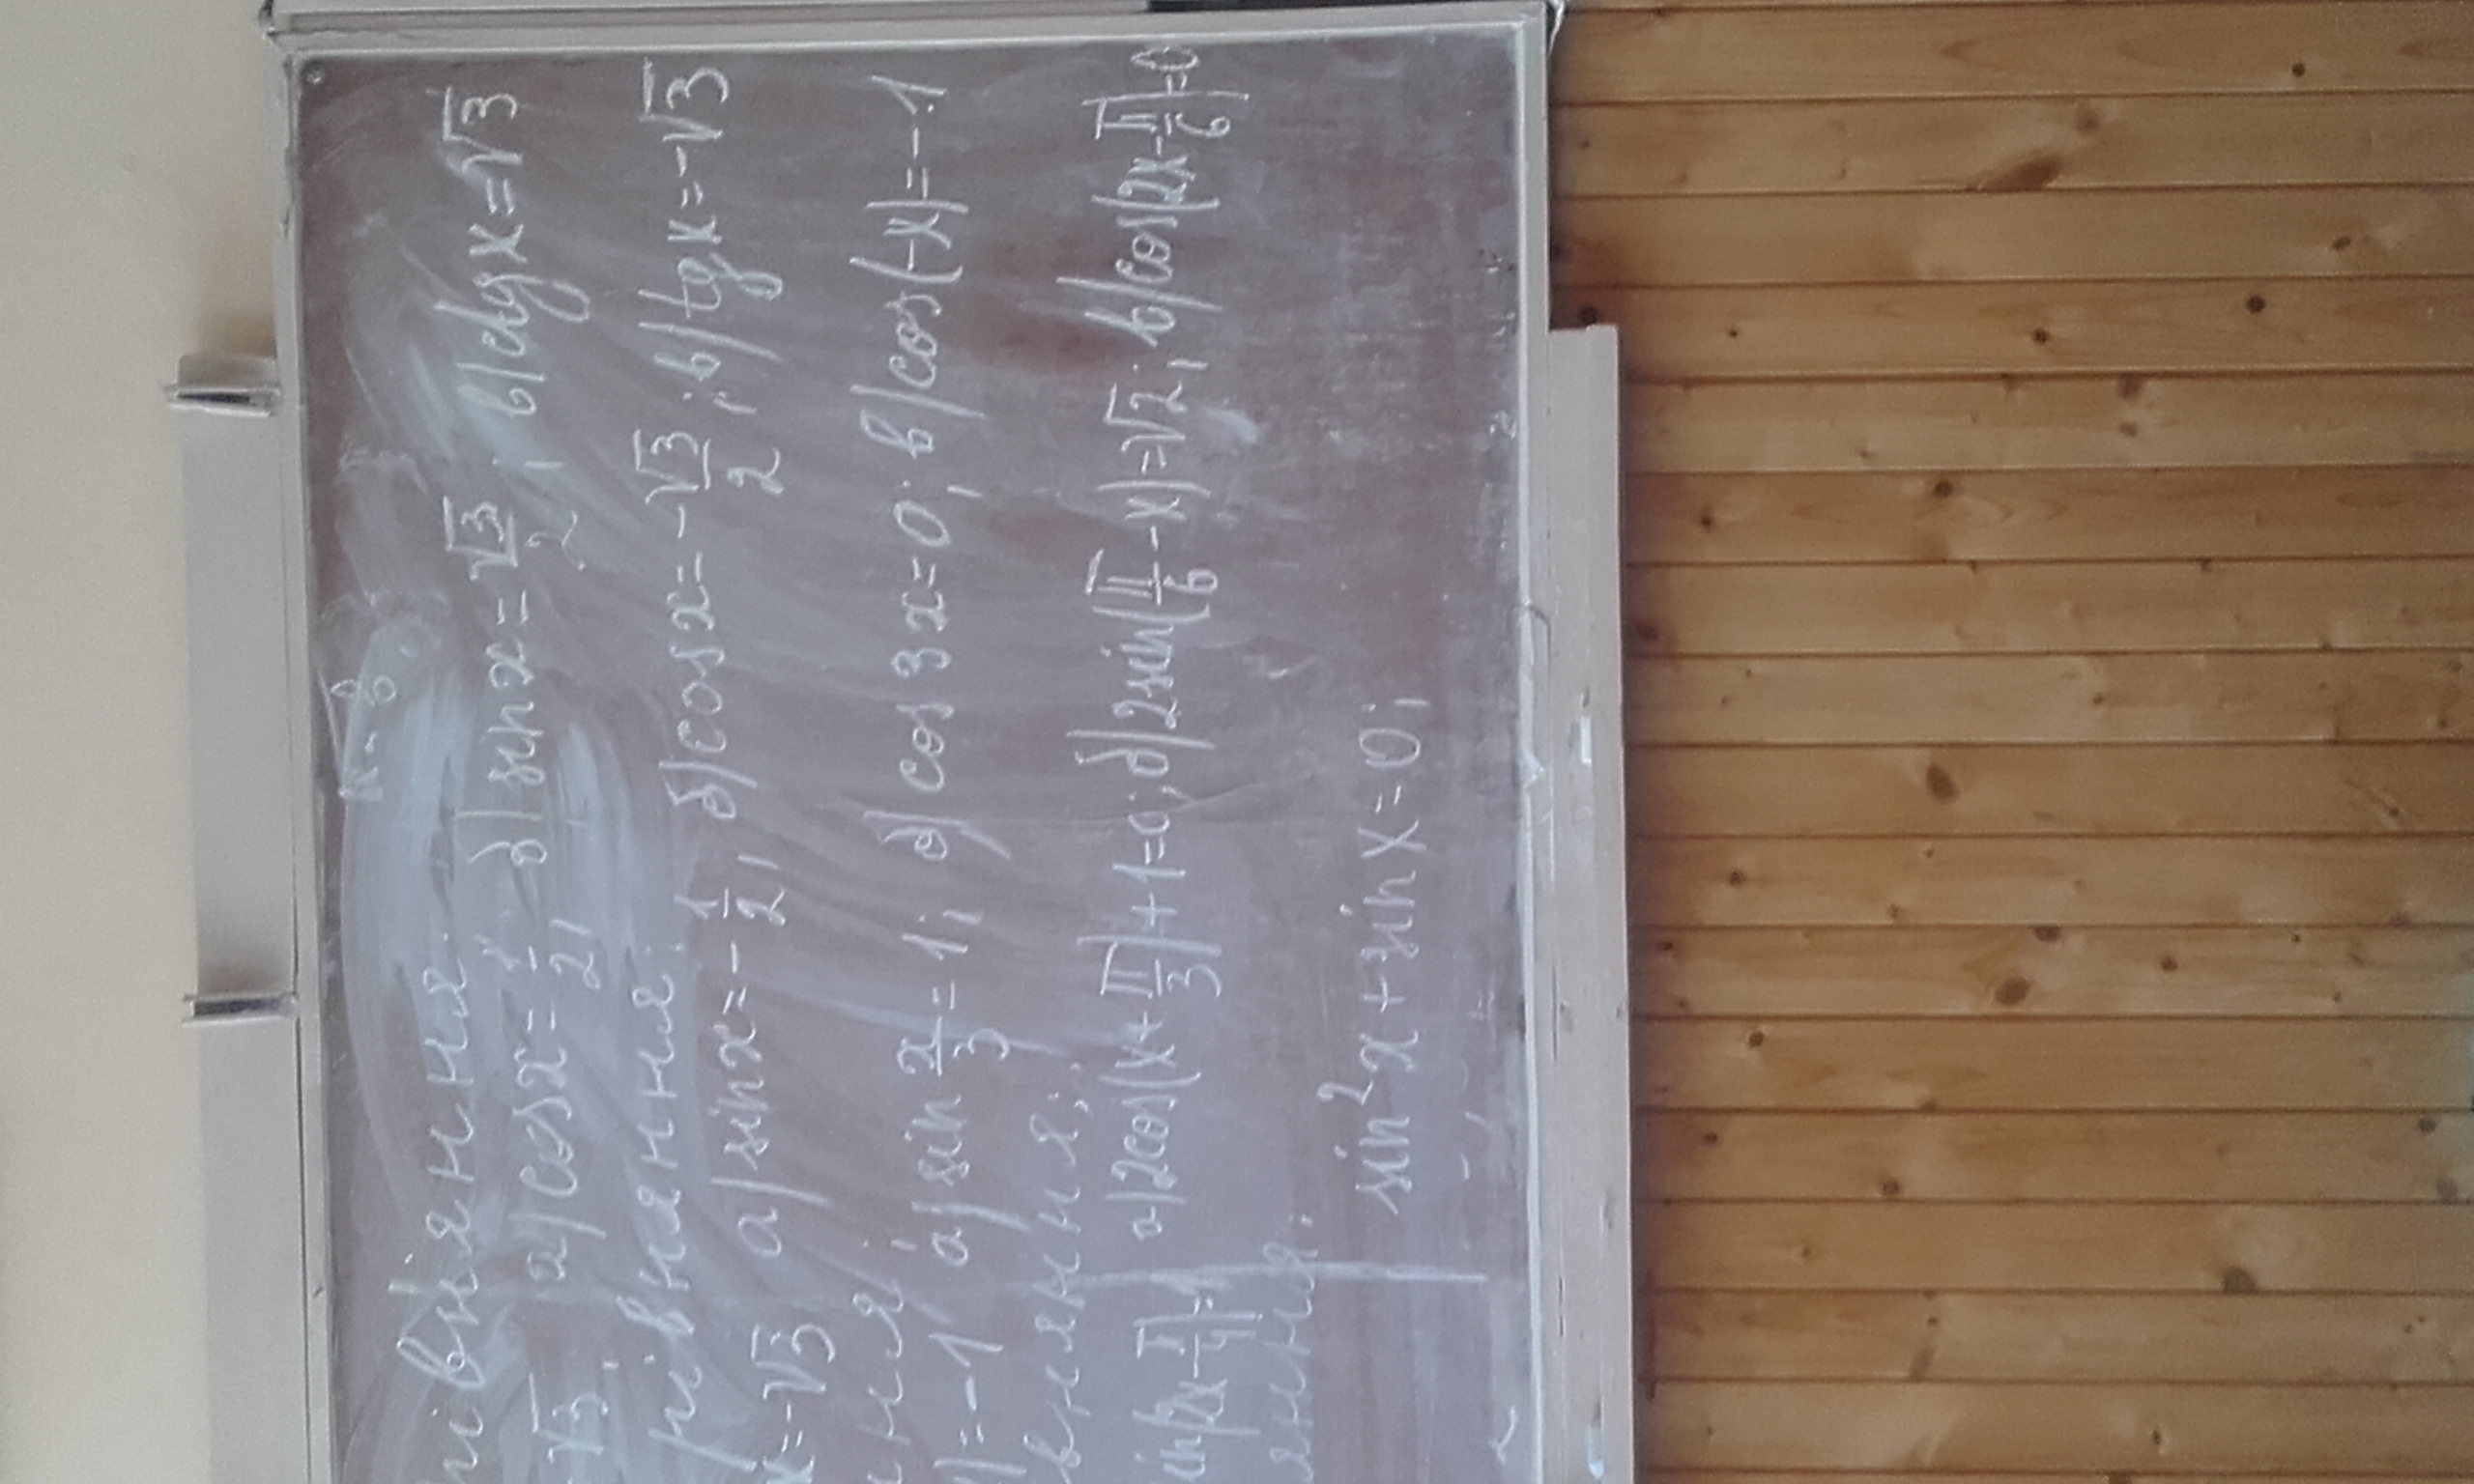 В-2
рівняння.
√3. а) cosx = 1/2; б) sinx = √3/2; в) ctgx = √3
рівняння.
x = -√3 а) sinx = -1/2; б) cosx = -√3/2; в) tgx = -√3
ння;
= -1 а) sin x/3 = 1; б) cos3x = 0; в) cos(-x) = -1
вняння;
sin(2x - π/4) = 1 а) 2cos(x + π/3) + 1 = 0; б) 2sin(π/6 - x) = √2; в) cos(2x - π/6) = 0
яння.
sin²x + sinx = 0;